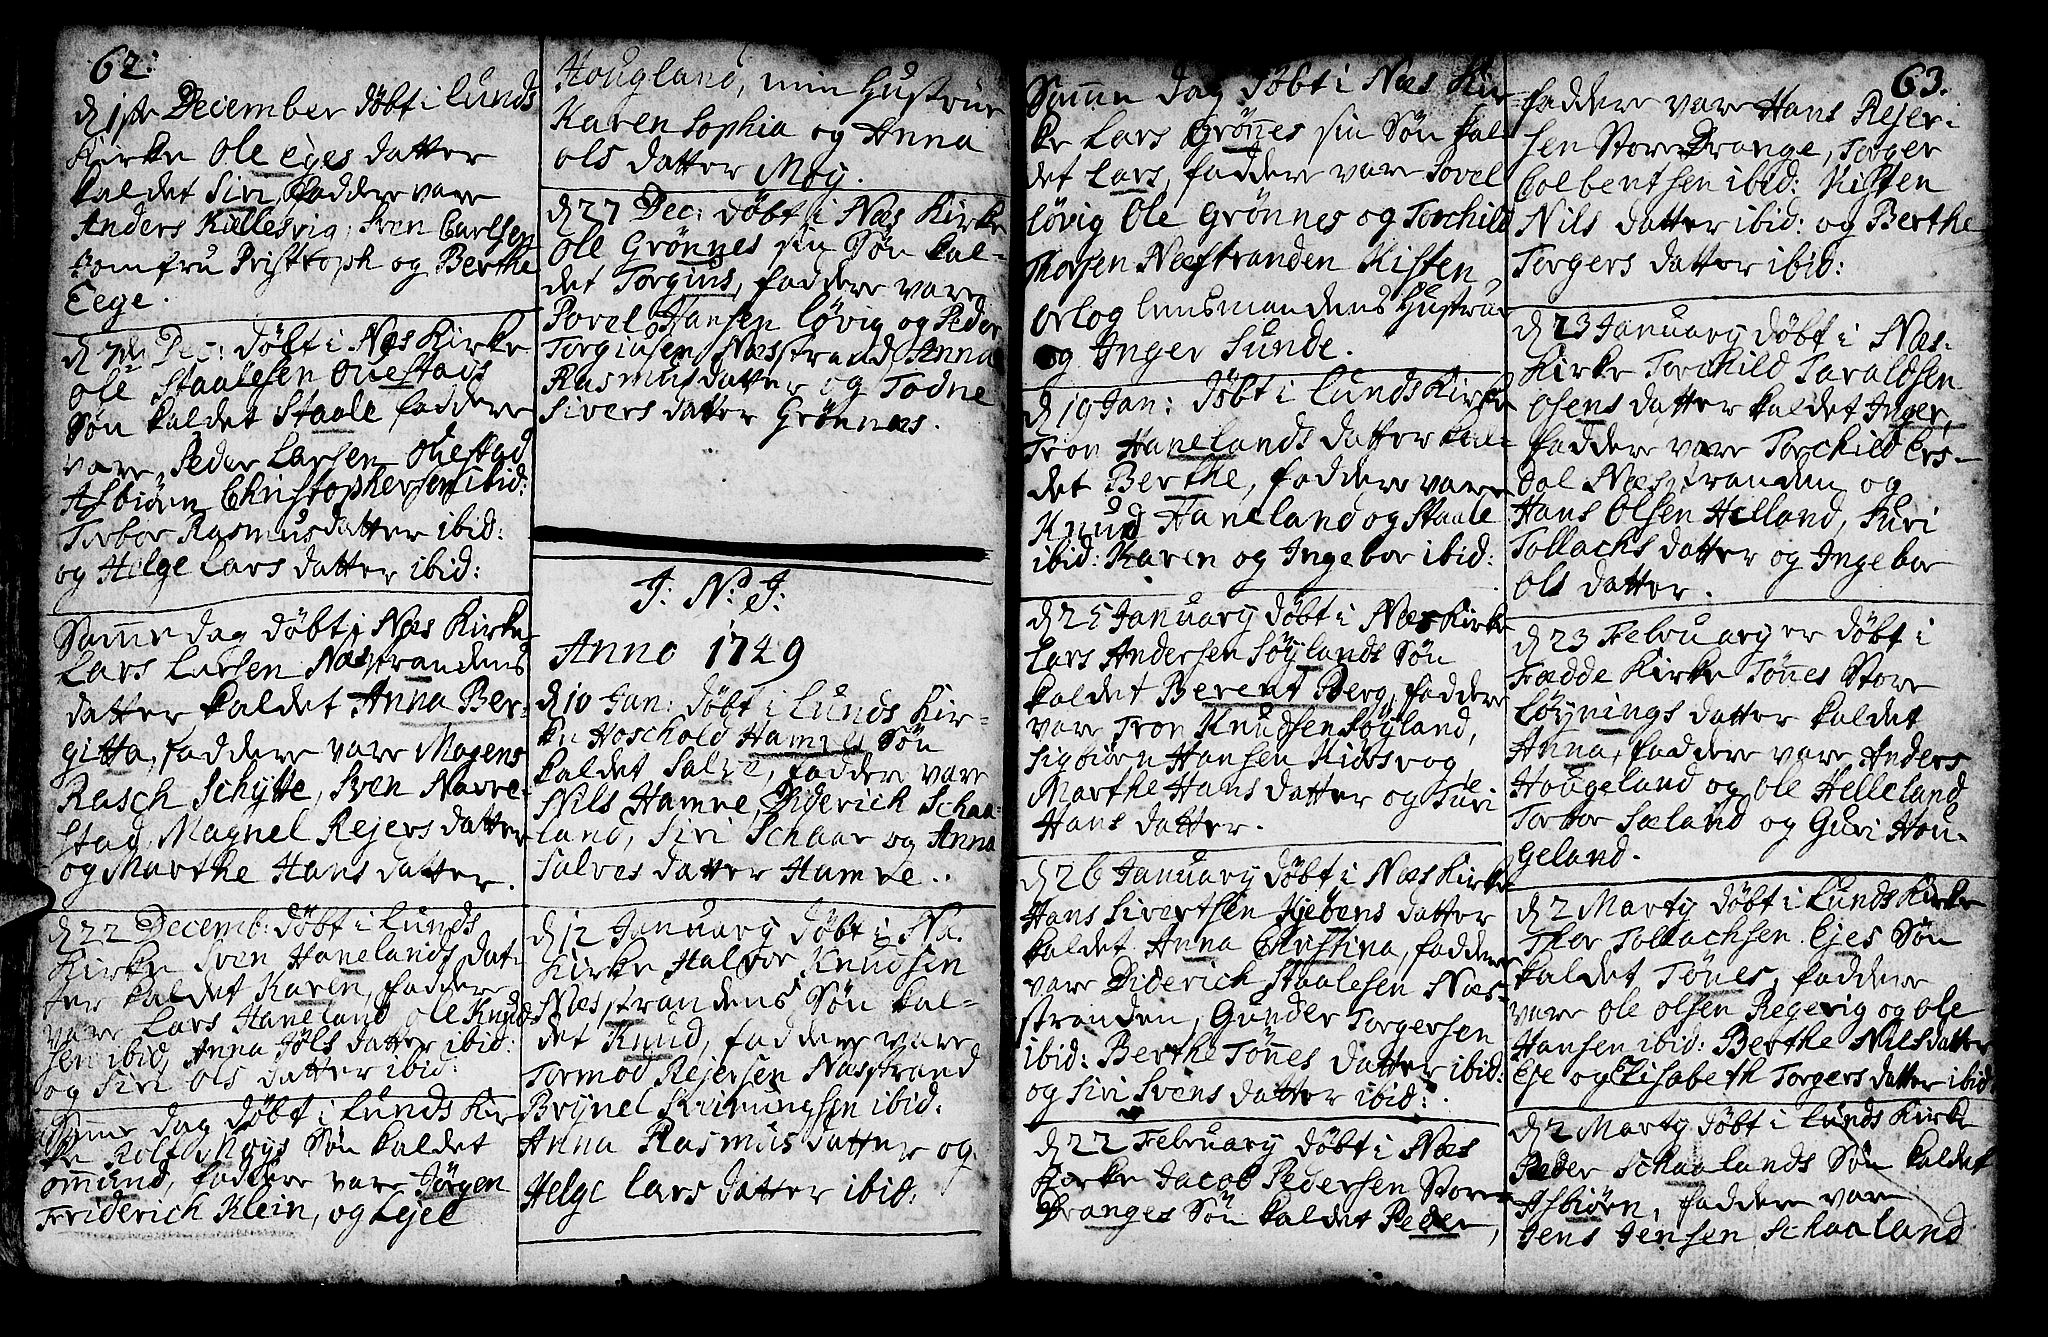 62:
d 1ste December döbt i Lunds
Kirke Ole Eges datter
kaldet Siri, faddere vare
Anders Kallesvig, Sven Carlsen
Jomfru Pristroph og Berthe
Eege.
d 7de Dec: döbt i Næs Kirke
Ole Staalesen Ovestads
Søn kaldet Staale faddere
vare, Peder Larsen Ovestad
Asbiörn Christophersen ibid:
Torbor Rasmusdatter ibid:
og Helge Lars datter ibid:
Samme dag döbt i Næs Kirke
Lars Larsen Næstrandens
datter kaldet Anna Ber-
gitta, faddere vare Mogens
Rasch Schytte, Sven Navre-
stad, Magnel Rejers datter
og Marthe Hans datter.
d 22 Decemb: döbt i Lunds
Kirke Sven Hanelands dat-
ter kaldet Karen, faddere
vare Lars Haneland Ole Knud-
sen ibid, Anna Jöls datter ibid:
og Siri Ols datter ibid:
Samme dag döbt i Lunds Kir
ke Rolf Moys Søn kaldet
Ommund, faddere vare Jörgen
Friderich Klein, og Lejel
Hougland, min Hustrue
Karen Sophia og Anna
Ols datter Moy.
d 27 Dec: döbt i Næs Kirke
Ole Grönnes sin Søn kal-
det Torgius, faddere vare
Povel Hansen Lövig og Peder
Torgiusen Næsstrand, Anna
Rasmusdatter og Todne
Sivers datter Grönnæs.
J: N: J:
Anno 1749
d 10 Jan: döbt i Lunds Kir-
ke Hoschold Hamres Søn
kaldet Salve, faddere vare
Nils Hamre, Diderich Schaa-
land, Siri Schaar og Anna
Salves datter Hamre.
d 12 January döbt i Næs
Kirke Halvor Knudsen
Næsstrandens Søn kal-
det Knud, faddere vare
Tormod Rejersen Næsstrand
Brynel ibid.
Anna Rasmus datter og
Helge Lars datter ibid:
63.
Samme dag döbt i Næs Kir
ke Lars Grönnes sin Søn kal
det Lars, faddere vare Povel
Lövig Ole Grönnes og Torchild
Thorsen Næsstranden Kisten
Orlog lensmandens Hustrue
og Inger Sunde.
d 19 Jan: döbt i Lunds Kirke
Tron Hanelands datter kal-
det Berthe, faddere vare
Knud Haneland og Staale
ibid: Karen og Ingebor ibid:
d 25 January döbt i Næs Kirke
Lars Andersen Söylands Søn
kaldet Berent Berg, faddere
vare Tron Knudsen Söyland,
Sigbiörn Hansen Kiörsvog
Marthe Hans datter og Turi
Hans datter.
d 26 January döbt i Næs Kirke
Hans Sivertsen Kjebens datter
kaldet Anna Christina, faddere
vare Diderich Staalesen Næs-
stranden, Gunder Torgersen
ibid: Berthe Tönnes datter ibid:
og Siri Svens datter ibid:
d 22 February döbt i Næs
Kirke Jacob Pedersen Store
Dranges Søn kaldet Peder,
faddere vare Hans Rejer-
sen Store Drange, Torger
Colbentsen ibid: Kisten
Nils datter ibid: og Berthe
Torgers datter ibid:
d 23 January döbt i Næs-
Kirke Torchild Taraldsen
Osens datter kaldet Inger,
faddere vare Torchild Ers-
dal Næsstranden og
Hans Olsen Helland, Suri
Tollachs datter og Ingebor
Ols datter.
d 23 Februaryer döbt i
Fædde Kirke Tönnes Store
Löynings datter kaldet
Anna, faddere vare Anders
Hougeland og Ole Helleland
Torbor Sæland og Guri Hou-
geland.
d 2 Marty döbt i Lunds Kirke
Thor Tollachsen Ejes Søn
kaldet Tönes, faddere
vare Ole Olsen Regevig og Ole
Hansen ibid: Berthe Nilsdatter
Eje og Elisabeth Torgers datter ibid:
d 2 Marty döbt i Lunds Kirke
Peder Schaalands Søn kaldet
Asbiörn, faddere vare
Jens Jensen Schaaland